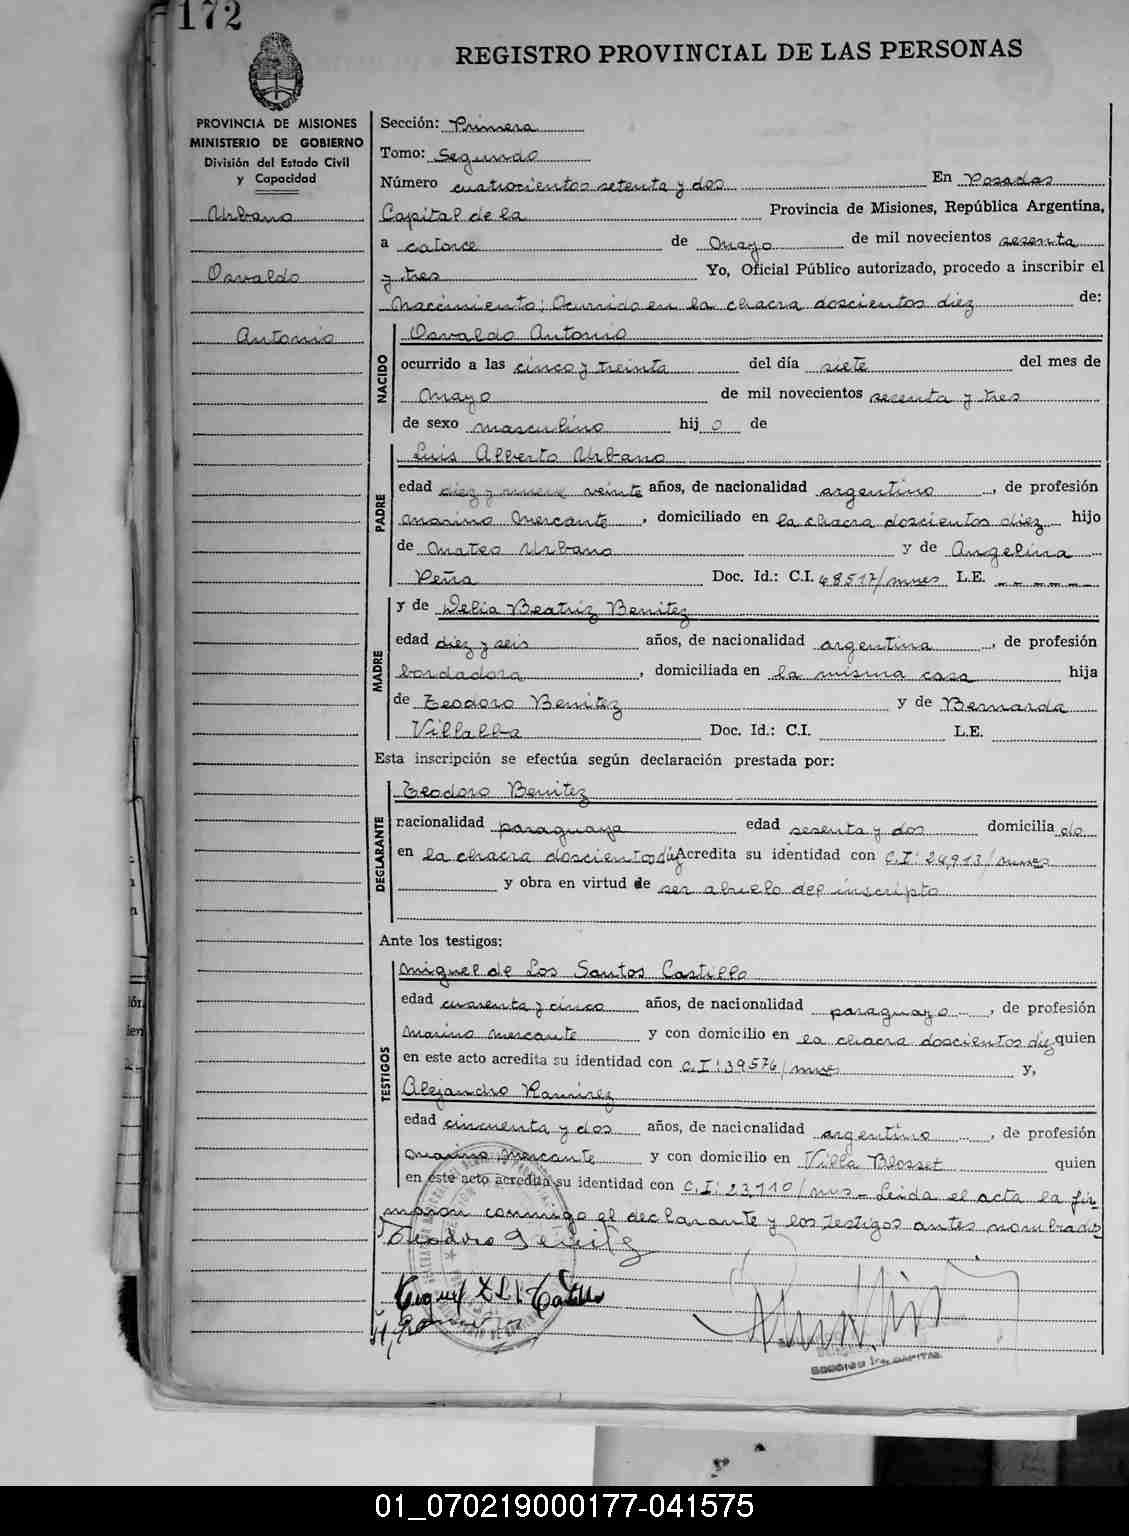 172
REGISTRO PROVINCIAL DE LAS PERSONAS
PROVINCIA DE MISIONES
MINISTERIO DE GOBIERNO
División del Estado Civil
y Capacidad
Urbano
Osvaldo
Antonio
Sección: Primera
Tomo: Segundo
Número cuatrocientos setenta y dos En Posadas
Capital de la Provincia de Misiones, República Argentina,
a catorce de Mayo de mil novecientos sesenta
y tres Yo, Oficial Público autorizado, procedo a inscribir el
Nacimiento; Ocurrido en la chacra doscientos diez de:
NACIDO
Osvaldo Antonio
ocurrido a las cinco y treinta del día siete del mes de
Mayo de mil novecientos sesenta y tres
de sexo masculino hij o de
PADRE
Luis Alberto Urbano
edad diez y nueve veinte años, de nacionalidad argentino, de profesión
Marino Mercante, domiciliado en la chacra doscientos diez hijo
de Mateo Urbano y de Angelina
Peña Doc. Id.: C.I. 48517/mnes L.E. ------
MADRE
y de Delia Beatriz Benitez
edad diez y seis años, de nacionalidad argentina, de profesión
bordadora, domiciliada en la misma casa hija
de Teodoro Benitez y de Bernarda
Villalba Doc. Id.: C.I. L.E.
Esta inscripción se efectúa según declaración prestada por:
DECLARANTE
Teodoro Benitez
nacionalidad paraguaya edad sesenta y dos domicilia do
en la chacra doscientos diez Acredita su identidad con C.I: 24,913/mnes
y obra en virtud de ser abuelo del inscripto
Ante los testigos:
TESTIGOS
Miguel de Los Santos Castillo
edad cuarenta y cinco años, de nacionalidad paraguayo, de profesión
Marino mercante y con domicilio en la chacra doscientos diez quien
en este acto acredita su identidad con C.I: 39576/mns y,
Alejandro Ramirez
edad cincuenta y dos años, de nacionalidad argentino, de profesión
Marino Mercante y con domicilio en Villa Blosset quien
en este acto acredita su identidad con C.I: 23,110/mns- Leida el acta la fir-
maron conmigo el declarante y los testigos antes nombrados
Teodoro Benitez
SECCION 1ra. CAPITAL
01_070219000177-041575